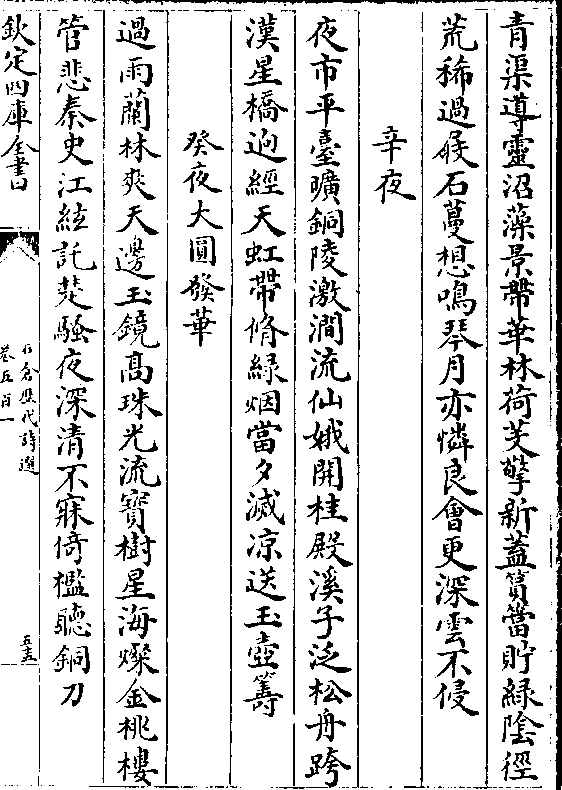 青渠導靈沼藻景帶華林荷芙擎新蓋篔簹貯綠陰徑
荒稀過屐石蔓想鳴琴月亦憐良會更深雲不侵
辛夜
夜市平臺曠銅陵激澗流仙娥開桂殿溪子泛松舟跨
漢星橋迥經天虹帶脩緑烟當夕滅凉送玉壺籌
癸夜大圓發華
過雨蘭林爽天邊玉鏡高珠光流寶樹星海燦金桃樓
管悲秦史江絃託楚騷夜深清不寐倚檻聽銅刀
欽定四庫全書
石倉歷代詩選
卷五百一
五十五